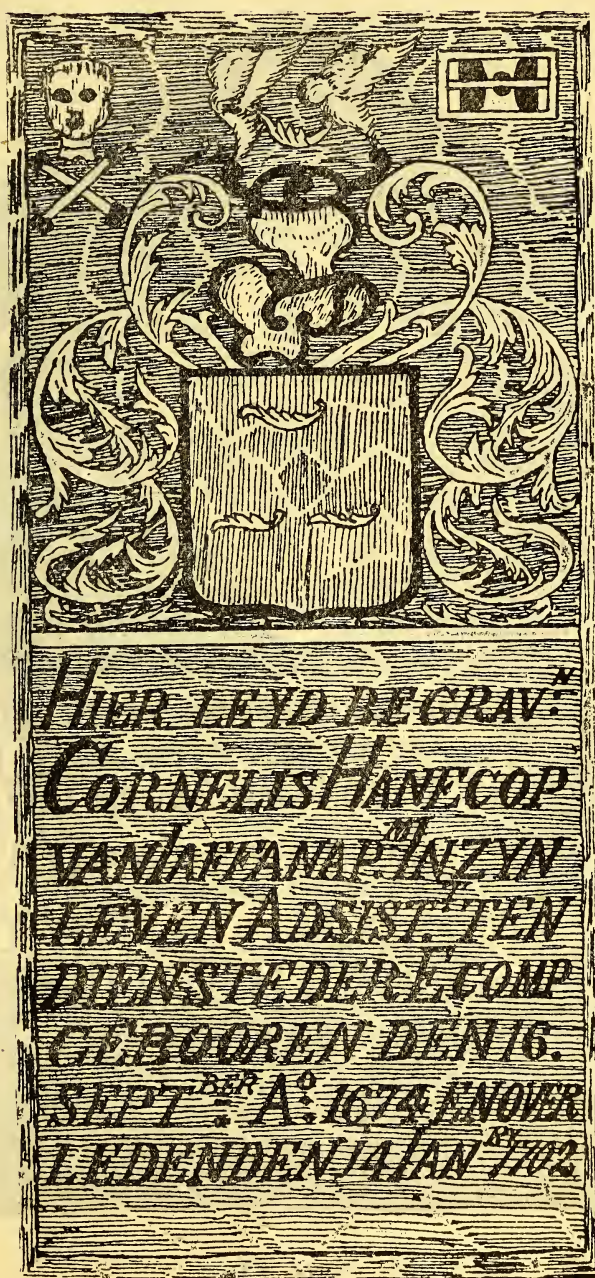 HIER LEYD BEGRAV:N
CORNELIS HANECOP
VAN IAFFANAP:M IN ZYN
LEVEN ADSIST:T TEN
DIENSTE DER E COMP
GEBOOREN DEN 16.
SEPT:BER A:o 1674 EN OVER
LEDEN DEN 14 IAN:RY 1702